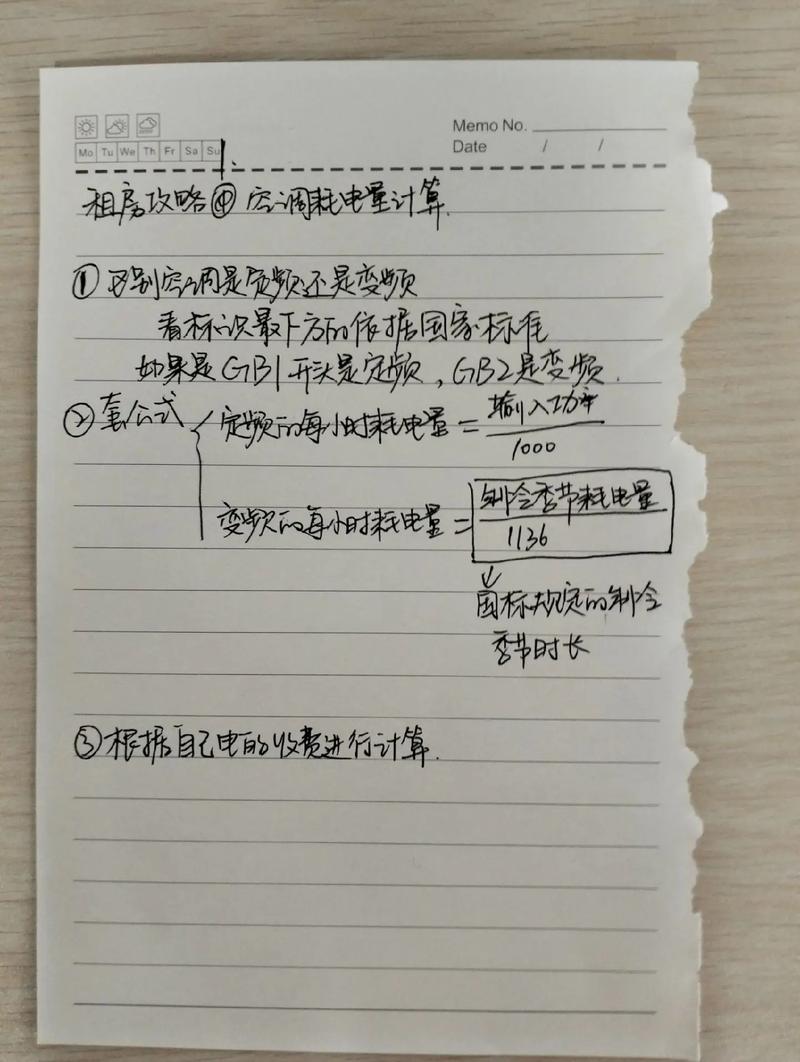 Memo No.
Mo Tu We Th Fr Sa Su
Date / /
租房攻略④ 空调耗电量计算.
① 区别空调是定频还是变频
看标识最下方的依据国家标准
如果是GB1开头是定频,GB2是变频.
② 套公式
定频的每小时耗电量 = 输入功率
1000
变频的每小时耗电量 = 制冷季节耗电量
1136
↓
国标规定的制冷
季节时长
③ 根据自己电的收费进行计算.